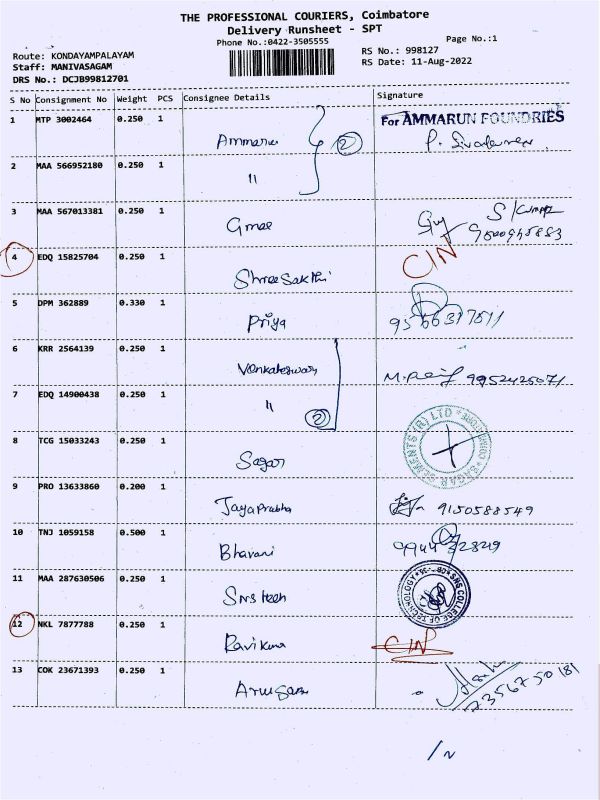 THE PROFESSIONAL COURIERS, Coimbatore
Delivery Runsheet - SPT
Phone No.:0422-3505555
Page No.:1
Route: KONDAYAMPALAYAM
Staff: MANIVASAGAM
DRS No.: DCJB99812701
RS No.: 998127
RS Date: 11-Aug-2022
S No Consignment No Weight PCS Consignee Details Signature
1 MTP 3002464 0.250 1 For AMMARUN FOUNDRIES
Ammarun 2
2 MAA 566952180 0.250 1
"
3 MAA 567013381 0.250 1
9500945883
4 EDQ 15825704 0.250 1 CIN
ShreeSakthi
5 DPM 362889 0.330 1
Priya
6 KRR 2564139 0.250 1
Venkateswar 9952425071
7 EDQ 14900438 0.250 1
"
8 TCG 15033243 0.250 1
Sagar
SAGAR CEMENTS (R) LTD
9 PRO 13633860 0.200 1
JayaPrabha 9150588549
10 TNJ 1059158 0.500 1
Bhavani
11 MAA 287630506 0.250 1
Sns tech
SNS COLLEGE OF TECHNOLOGY
12 NKL 7877788 0.250 1
Ravikuma CIN
13 COK 23671393 0.250 1